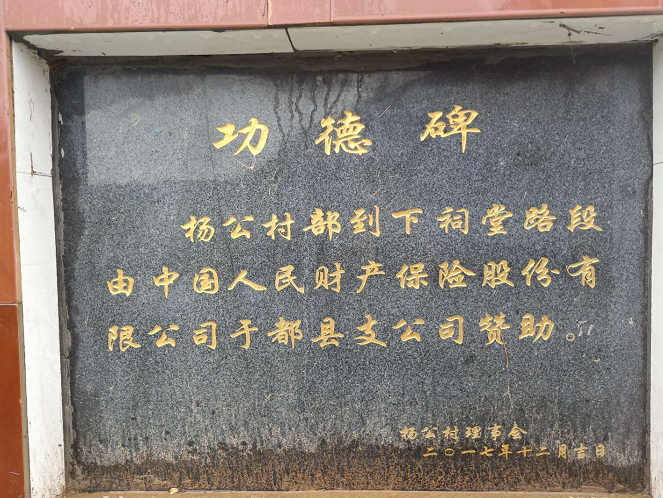 功德碑
杨公村部到下祠堂路段
由中国人民财产保险股份有
限公司于都县支公司赞助。
杨公村理事会
二〇一七年十二月吉日